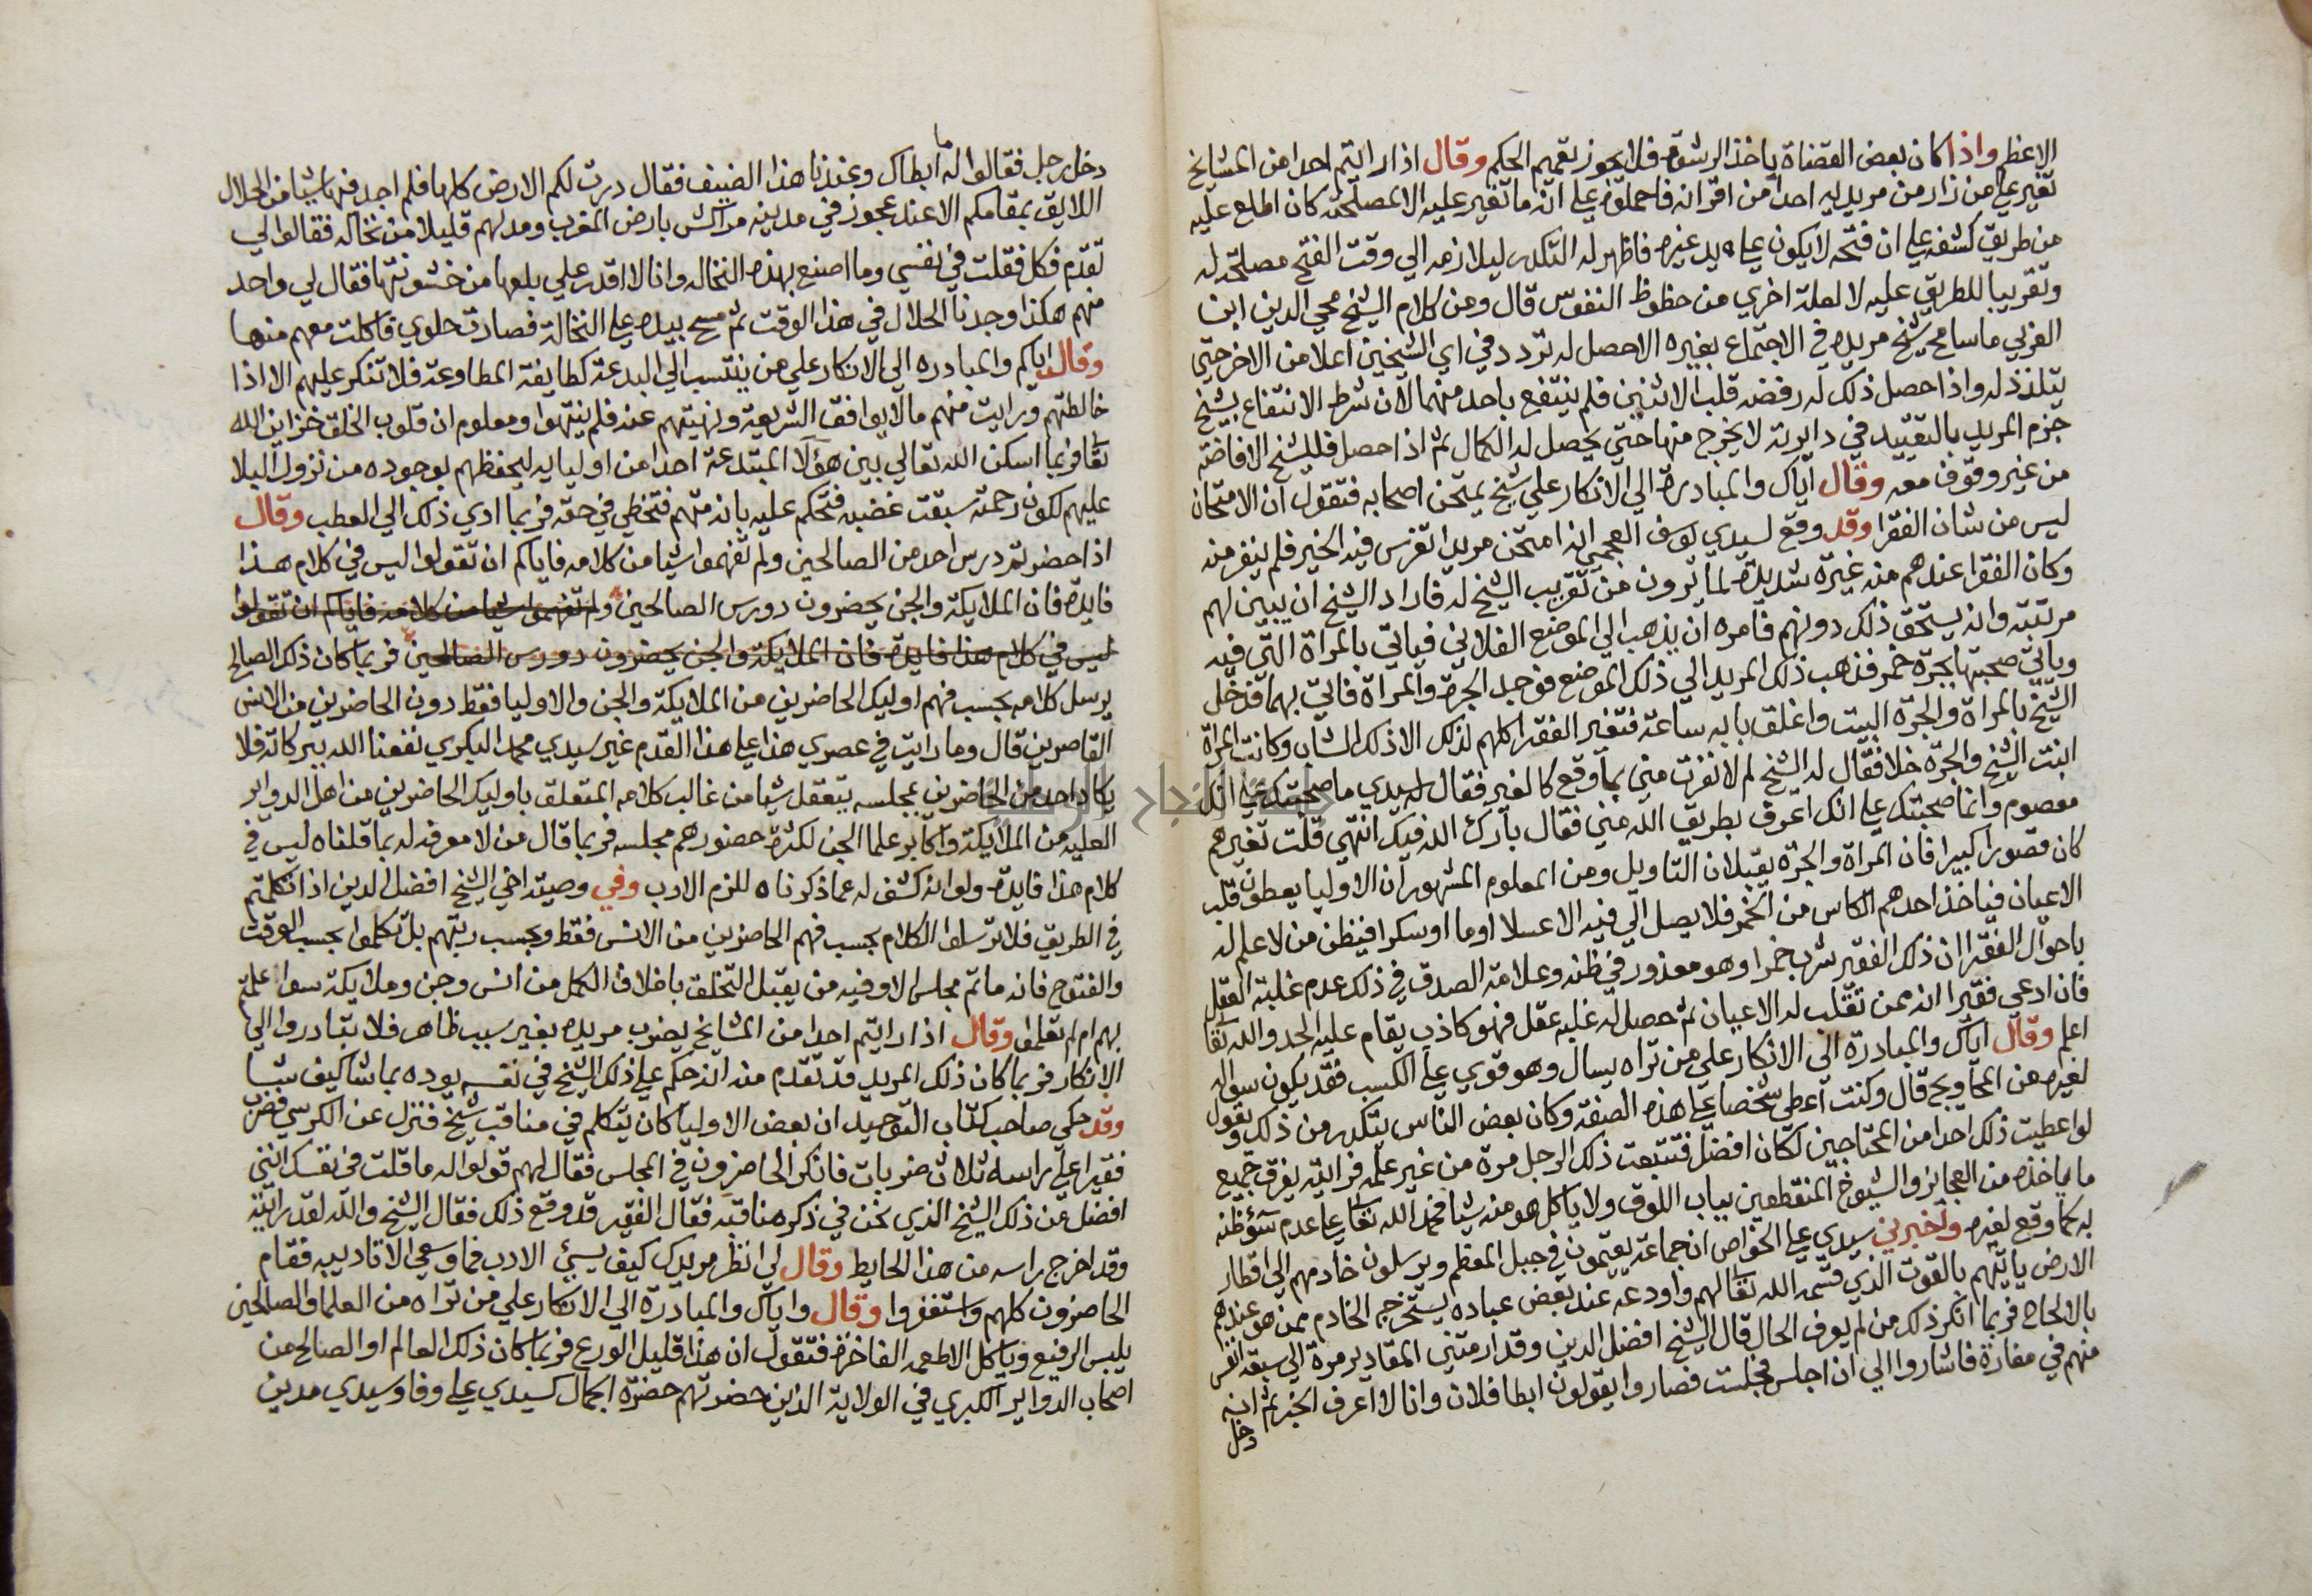 الاعظم واذا كان بعض القضاة ياخذ الرشوة فلا يجوز تعميم الحكم وقال اذا رايتم احدا من المشايخ
تغير على من زار من مريديه احدا من اقرانه فاحملوه على انه ما تغير عليه الا لمصلحته كان اطلع عليه
من طريق كشفه على ان فتحه لا يكون على يد غيره فاظهر له التكدر ليلازمه الى وقت الفتح مصلحة له
وتقريبا للطريق عليه لا لعلة اخري من حظوظ النفوس قال ومن كلام الشيخ محيي الدين ابن
العربي ما سامح شيخ مريده في الاجتماع بغيره الا حصل له تردد في اي الشيخين اعلا من الاخر حتي
يتلمذ له واذا حصل ذلك له رفضه قلب الاثنين فلم ينتفع باحد منهما لان شرط الانتفاع بشيخ
جزم المريد بالتقييد في دايرته لا يخرج منها حتي يحصل له الكمال ثم اذا حصل فللشيخ الافاضة
من غير وقوف معه وقال اياك والمبادرة الي الانكار علي شيخ يمتحن اصحابه فتقول ان الامتحان
ليس من شان الفقرا وقد وقع لسيدي يوسف العجمي انه امتحن مريدا تفرس فيه الخير فلم ينفر منه
وكان الفقرا عندهم منه غيرة شديدة لما يرون من تقريب الشيخ له فاراد الشيخ ان يبين لهم
مرتبته وانه يستحق ذلك دونهم فامره ان يذهب الي الموضع الفلاني فياتي بالمراة التي فيه
وياتي صحبتها بجرة خمر فذهب ذلك المريد الي ذلك الموضع فوجد الجرة والمراة فاتي بهما فدخل
الشيخ بالمراة والجرة البيت واغلق بابه ساعة فتغير الفقرا كلهم لذلك الا ذلك الشاب وكانت المراة
ابنت الشيخ والجرة خلا فقال له الشيخ لم لا نفرت مني بما وقع كالغير فقال له سيدي ما صحبتك على انك
معصوم وانما صحبتك على انك اعرف بطريق الله مني فقال بارك الله فيك انتهي قلت تغيرهم
كان قصورا كبيرا فان المراة والجرة يقبلان التاويل ومن المعلوم المشهور ان الاوليا يعطون قلب
الاعيان فياخذ احدهم الكاس من الخمر فلا يصل الي فيه الا عسلا او ما او سكرا فيظن من لا علم له
باحوال الفقرا ان ذلك الفقير شرب خمرا وهو معذور في ظنه وعلامة الصدق في ذلك عدم غلبة العقل
فان ادعي فقيرا انه ممن تقلب له الاعيان ثم حصل له غلبه عقل فهو كاذب يقام عليه الحد والله تعا
اعلم وقال اياك والمبادرة الي الانكار علي من تراه يسال وهو قوي على الكسب فقد يكون سواله
لغيره من المحاويج قال وكنت اعطي شخصا على هذه الصفة وكان بعض الناس يتكدر من ذلك ويقول
لو اعطيت ذلك احدا من المحتاجين لكان افضل فتتبعت ذلك الرجل مرة من غير علمه فرايته يفرق جميع
ما ياخذه من العجايز والشيوخ المنقطعين بباب اللوق ولا ياكل هو منه شيا فحمد الله تعا على عدم سؤ ظنه
به كما وقع لغيره واخبرني سيدي علي الخواص ان جماعة يقيمون في جبل المعظم ويرسلون خادمهم الي اقطار
الارض ياتيهم بالقوت الذي قسمه الله تعا لهم واودعه عند بعض عباده يستخرجه الخادم ممن هو عندهم
بالالحاح فربما انكر ذلك من لم يعرف الحال قال الشيخ افضل الدين وقد ارمتني المقادير مرة الي سبعة انفس
منهم في مغارة فاشاروا الي ان اجلس فجلست فصاروا يقولون ابطا فلان وانا لا اعرف الخبر ثم انه
دخل
دخل رجل فقالوا له ما ابطاك وعندنا هذا الضيف فقال درت لكم الارض كلها فلم اجد فيها شيا من الحلال
اللايق بمقامكم الا عند عجوز في مدينه مراكش بارض المغرب ومد لهم قليلا من نخاله فقالوا لي
تقدم فكل فقلت في نفسي وما اصنع بهذه النخاله وانا لا اقدر علي بلعها من خشونتها فقال لي واحد
منهم هكذا وجدنا الحلال في هذا الوقت ثم مسح بيده على النخالة فصارت حلوي فاكلت معهم منها
وقال اياكم والمبادره الي الانكار علي من ينتسب الي البدعة كطايفة المطاوعة فلا تنكر عليهم الا اذا
خالطتهم ورايت منهم ما لا يوافق الشريعة ونهيتهم عنه فلم ينتهوا ومعلوم ان قلوب الخلق خزاين الله
تعا فربما اسكن الله تعالي بين هؤلا المبتدعة احدا من اوليايه ليحفظهم بوجوده من نزول البلا
عليهم لكون رحمته سبقت غضبه فتحكم عليه بانه منهم فتخطي في حقه فربما ادي ذلك الي العطب وقال
اذا حضرتم درس احد من الصالحين ولم تفهموا شيا من كلامه فاياكم ان تقولوا ليس في كلام هذا
فايدة فان الملايكة والجن يحضرون دورس الصالحين ولم تفهموا شيا من كلامه فاياكم ان تقولوا
ليس في كلام هذا فايدة فان الملايكة والجن يحضرون دورس الصالحين فربما كان ذلك الصالح
يرسل كلامه بحسب فهم اوليك الحاضرين من الملايكة والجن والاوليا فقط دون الحاضرين من الانس
القاصرين قال وما رايت في عصري هذا على هذا القدم غير سيدي محمد البكري نفعنا الله ببركاته فلا
يكاد احد من الحاضرين بمجلسه يتعقل شيا من غالب كلامه المتعلق باوليك الحاضرين من اهل الدواير
العليه من الملايكة واكابر علما الجن لكثرة حضورهم مجلسه فربما قال من لا معرفه له بما قلناه ليس في
كلام هذا فايدة ولو انه كشف له عما ذكرناه للزم الادب وفي وصيته اخي الشيخ افضل الدين اذا تكلمتم
في الطريق فلا ترسلوا الكلام بحسب فهم الحاضرين من الانس فقط وبحسب رتبتهم بل تكلموا بحسب الوقت
والفتوح فانه ما تم مجلس الا وفيه من يقبل التخلق باخلاق الكمل من انس وجن وملايكة سوا علمتم
بهم ام لم تعلموا وقال اذا رايتم احدا من المشايخ يضرب مريده بغير سبب ظاهر فلا تبادروا الي
الانكار فربما كان ذلك المريد قد تقدم منه انه حكم على ذلك الشيخ في نفسه يوده بما شا كيف شا
وقد حكي صاحب كتاب التوحيد ان بعض الاوليا كان يتكلم في مناقب شيخ فنزل عن الكرسي فضرب
فقيرا على راسه ثلاث ضربات فانكر الحاضرون في المجلس فقال لهم قولوا له ما قلت في نفسك انني
افضل من ذلك الشيخ الذي نحن في ذكر مناقبه فقال الفقير قد وقع ذلك فقال الشيخ والله لقد رايته
وقد اخرج راسه من هذا الحايط وقال لي انظر مريدك كيف يسئ الادب فما وسعني الا تاديبه فقام
الحاضرون كلهم واستغفروا وقال واياك والمبادرة الي الانكار علي من تراه من العلما والصالحين
يلبس الرفيع وياكل الاطعمه الفاخرة فتقول ان هذا قليل الورع فربما كان ذلك العالم او الصالح من
اصحاب الدواير الكبري في الولاية الذين حضرتهم حضرة اجمال كسيدي علي وفا وسيدي مدين